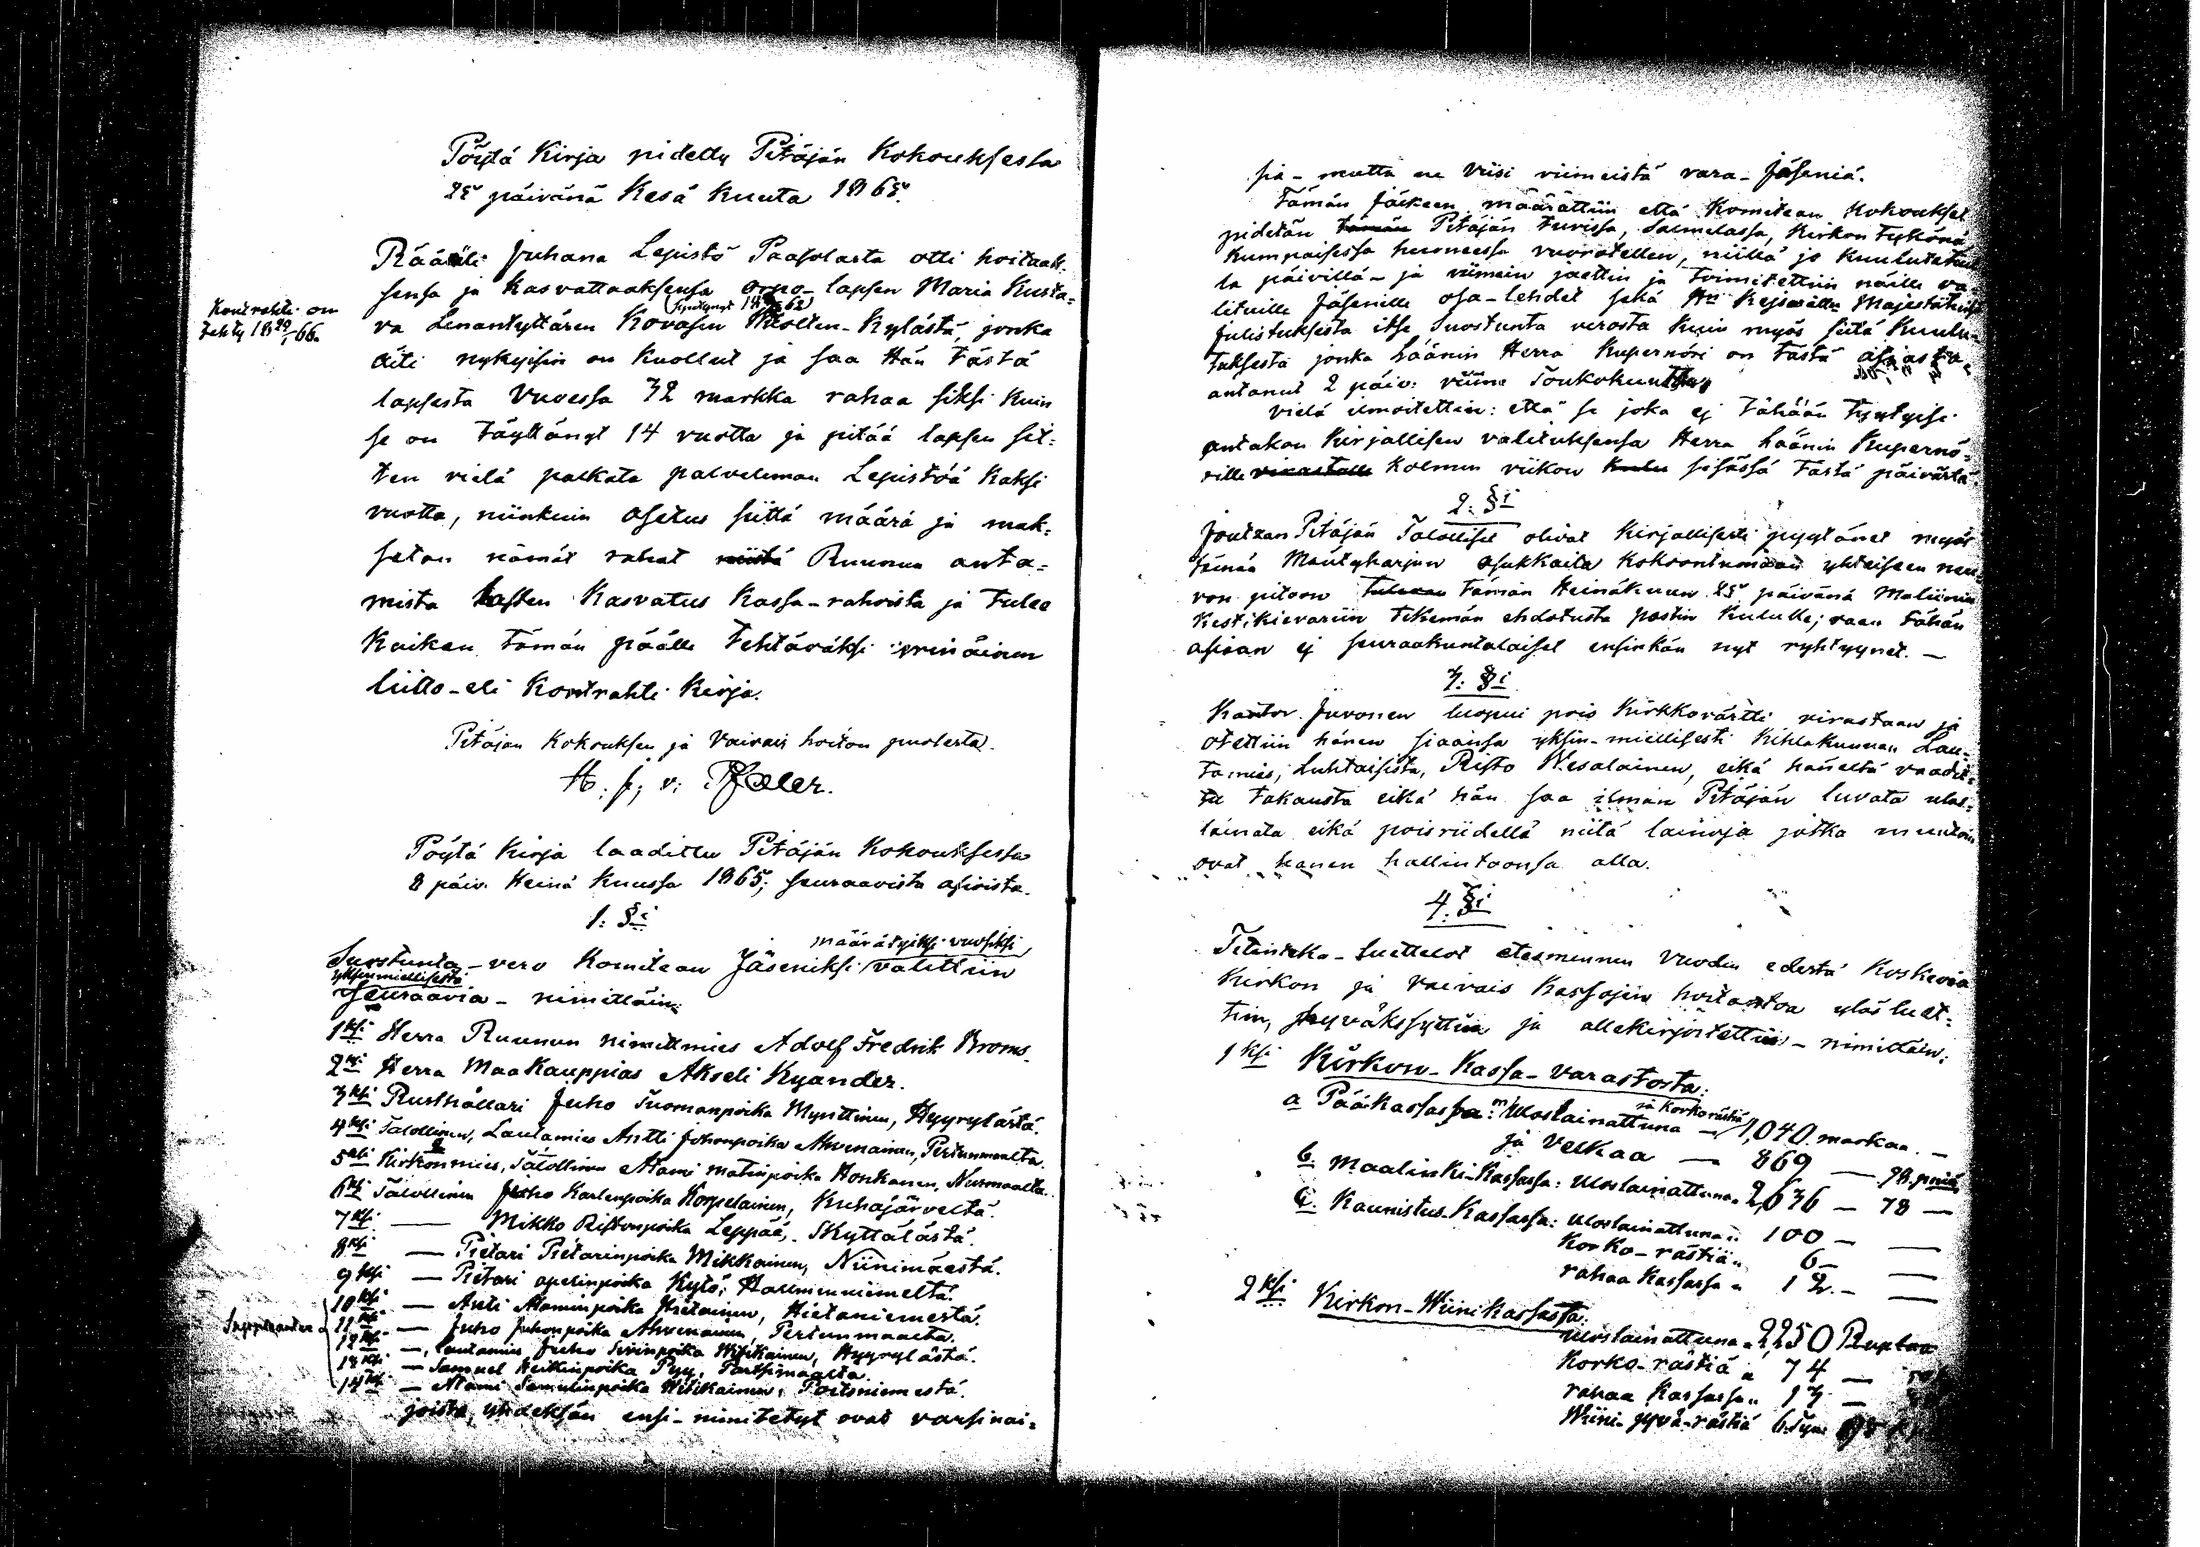 Pöytä Kirja pidetty Pitäjän Kokouksessa
25 päivänä Kesä Kuuta 1865.
Räätäli Juhana Lepistö Paasolasta otti hoitaak-
sensa ja Kasvattaaksensa orpo-lapsen Maria Kusta-
(Syntynyt 62)
va Lenantyttären Kovasen Kuolten-Kylästä, jonka
äiti nykyisin on Kuollut ja saa Hän tästä
lapsesta Vuvessa 32 markka rahaa siksi Kuin
se on täyttänyt 14 vuotta ja pitää lapsen sit-
ten vielä palkata palveleman Lepistöä Kaksi
vuotta, niinkuin Asetus siittä määrä ja mak-
setan nämät rahat niistä Ruunun anta-
mista lasten Kasvatus Kassa-rahoista ja tulee
Kaiken tämän päälle tehtäväksi erinäinen
liitto-eli Kontrahti Kirja.
Kontrahti on
tehty 18 66.
Pitäjän Kokouksen ja Vaivais hoiton puolesta.
A. f. v.
Pöytä Kirja laadittu Pitäjän Kokouksessa
8 päiv. Heinä Kuussa 1865; seuraavista asioista.
1. §i
määrätyiksi vuosiksi
Suostunta-vero Komitean Jäseniksi valittiin
yksinmielisesti
seuraavia - nimittäin:
1ksi Herra Ruunun nimittmies Adolf Fredrik Broms.
2ksi Herra MaaKauppias Akseli Kyander.
3ksi Rusthollari Juho Tuomanpoika Mynttinen, Hyyrylästä.
4ksi Talollinen, Lautamies Antti Juhonpoika Ahvenainen, Pertunmaalta.
5ksi Kirkonmies, Talollinen Atami matinpoika Honkanen, Nurmaalta.
6ksi Talollinen Juho Kaulenpoika Korpelainen, Kuhajärveltä.
7ksi — Mikko Ristonpoika Leppää, Skyttälästä.
8ksi — Pietari Pietarinpoika Mikkainen, Niinimäestä.
9ksi — Pietari apelinpoika Kytö, Halmenniemeltä.
10ksi — Anti Ataminpoika Hietainen, Hietaniemestä.
11ksi — Juho Juhonpoika Ahvenainen, Pertunmaalta.
12ksi —, Lautamies Juho Wihikainen, Hyyrylästä.
13ksi — Samuel Heikinpoika Pyy, Partsimaalta.
14ksi — Atami Samulinpoika Wihikainen, Poitsniemestä.
Suppleanter
joista, yhdeksän ensi-nimitetyt ovat varsinai-
sia - mutta ne viisi viimeistä vara-Jäseniä.
Tämän Jälkeen määrättiin että Komitean Kokoukset
pidetän tämän Pitäjän tuvissa, Salmelassa, Kirkon tykönä
Kumpaisessa huoneessa vuorotellen, niillä jo Kuulutetuil-
la päivillä - ja viimein jaettin ja toimitettiin näille va-
lituille Jäsenille osa-lehdet sekä Kejsarillisen Majestätin
Julistuksesta itse Suostunta verosta Kuin myös siitä Kuulu-
tuksesta jonka Läänin Herra Kupernöri on tästä asiasta
antanut 2 päiv. viime Toukokuuta
vielä ilmoitettiin: että se joka ej tähään tyytyisi
antakon Kirjallisen valituksensa Herra Läänin Kupernö-
rille Kolmen viikon sisässä tästä päivästä.
2. §i
Joutzan Pitäjän Talolliset olivat Kirjallisesti pyytänet myös
tämän Mäntyharjun asukkaita Kokoontumaan yhteiseen neu-
von pitoon tulevan tämän Heinäkuun 25 päivänä
Kestikievariin tekemän ehdotusta postin Kululle; vaan tähän
asiaan ej seuraakuntalaiset ensinkän nyt ryhtyynet. —
3. §i
Kantor Juvonen luopui pois Kirkkovärtti virastaan ja
otettiin hänen siaansa yksin-mielisesti Kihlakunnan Lau-
tamies, Luhtaisista, Risto Wesalainen, eikä häneltä vaadit-
tu takausta eikä hän saa ilman Pitäjän luvata ulos-
lainata eikä poisriidellä niitä lainoja jotka muutoin
ovat hänen hallintoonsa alla.
4. §i
Tilinteko-luettelot etesmennen vuoden edestä Koskeva
Kirkon ja vaivais Kassojen hoitantoa ylösluet-
tiin, hyväksyttiin ja allekirjoitettiin - nimittäin:
1ksi Kirkon-Kassa-varastosta:
ja Korkorästiä
a Pääkassassa: Uloslainattuna — 1,040 markaa. —
ja velkaa — 869 — 78. pniä
b. maalinki-Kassassa: Uloslainattuna 2636 — 78 —
c. Kaunistus Kassassa: Uloslainattuna 100 — —
Korko-rästiä 6 — —
rahaa Kassassa 12. — —
2ksi Kirkon-Wiinikassasta:
Uloslainattuna 2250 Ruplaa
Korko-rästiä 74 —
rahaa Kassassa 13 —
Wiini-jyvä-rästiä 6 Tyn.